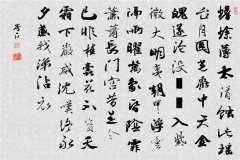 蟾蜍薄太清蝕此瑤
台月圓光虧中天金
魄遂淪沒■■入紫
微大明夷朝暉浮雲
隔兩曜萬象昏陰霏
蕭蕭長門宮昔是今
已非桂蠹花不實天
霜下嚴威沈嘆終永
夕感我涕沾衣